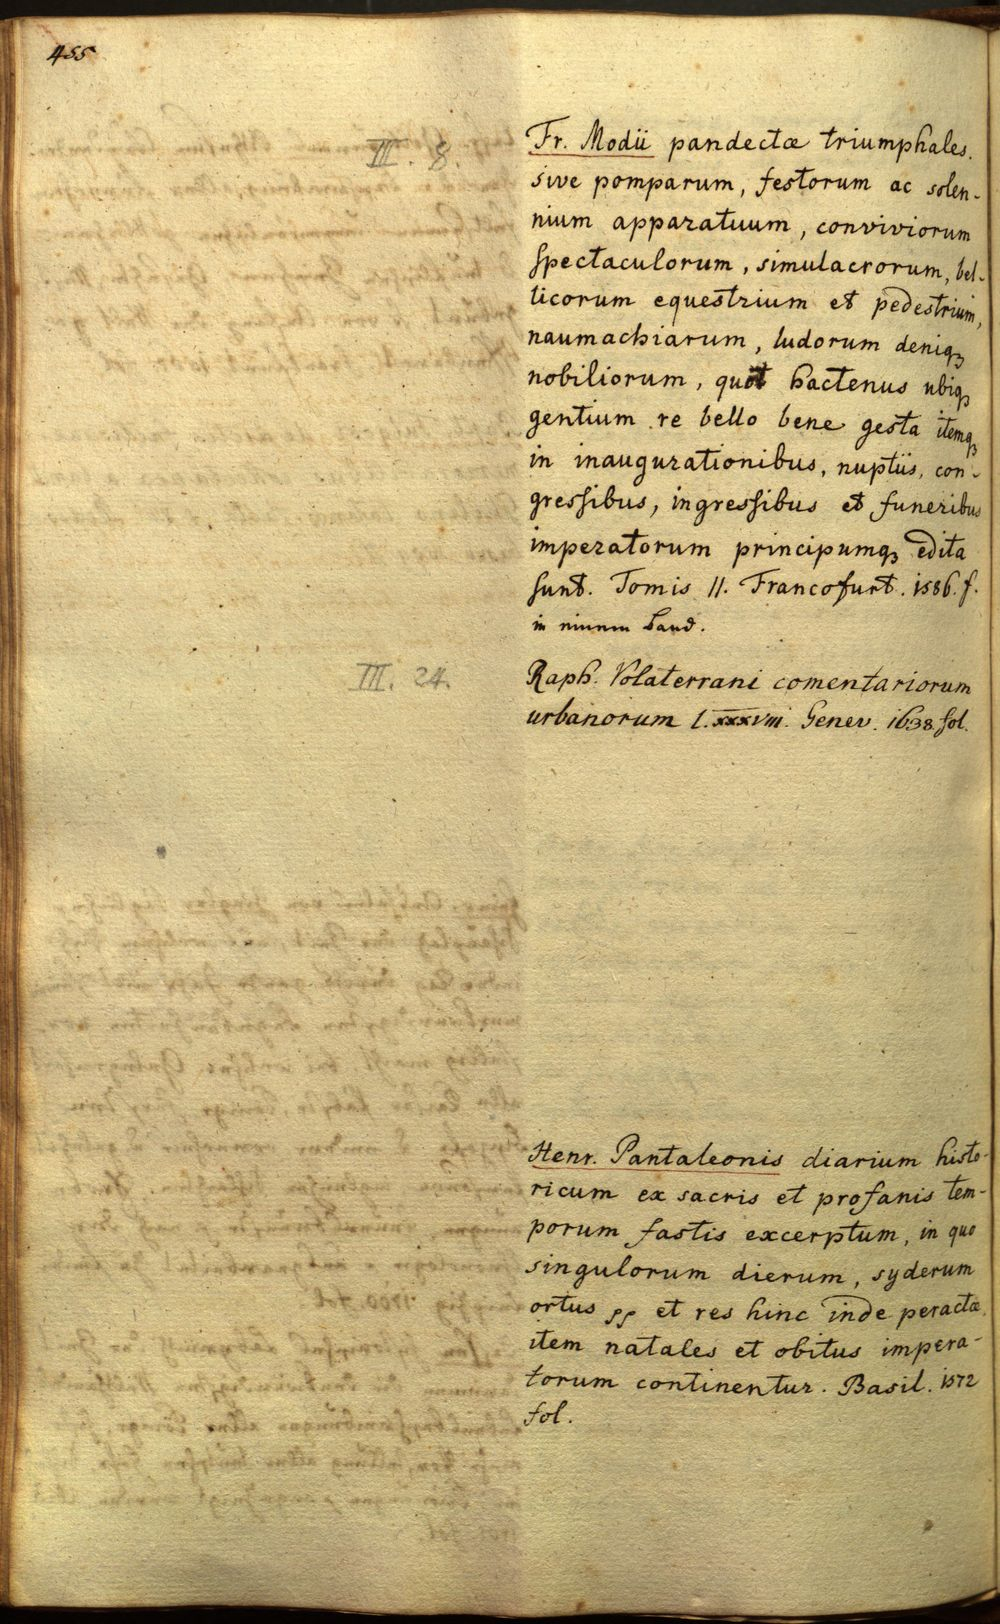 455
III. 8.
Fr. Modii pandectæ triumphales.
sive pomparum, festorum ac solen-
nium apparatuum, conviviorum
spectaculorum, simulacrorum, bel-
licorum equestrium et pedestrium,
naumachiarum, ludorum deniqꝫ
nobiliorum, quot hactenus ubiqꝫ
gentium re bello bene gesta itemqꝫ
in inaugurationibus, nuptiis, con-
gressibus, ingressibus et funeribus
imperatorum principumqꝫ edita
sunt. Tomis II. Francofurt. 1586. f.
in einem Band.
III. 24.
Raph. Volaterrani comentariorum
urbanorum l. xxxviii. Genev. 1638 fol.
Henr. Pantaleonis diarium histo-
ricum ex sacris et profanis tem-
porum fastis excerptum, in quo
singulorum dierum, syderum
ortus et res hinc inde peractæ,
item natales et obitus impera-
torum continentur. Basil. 1572
fol.